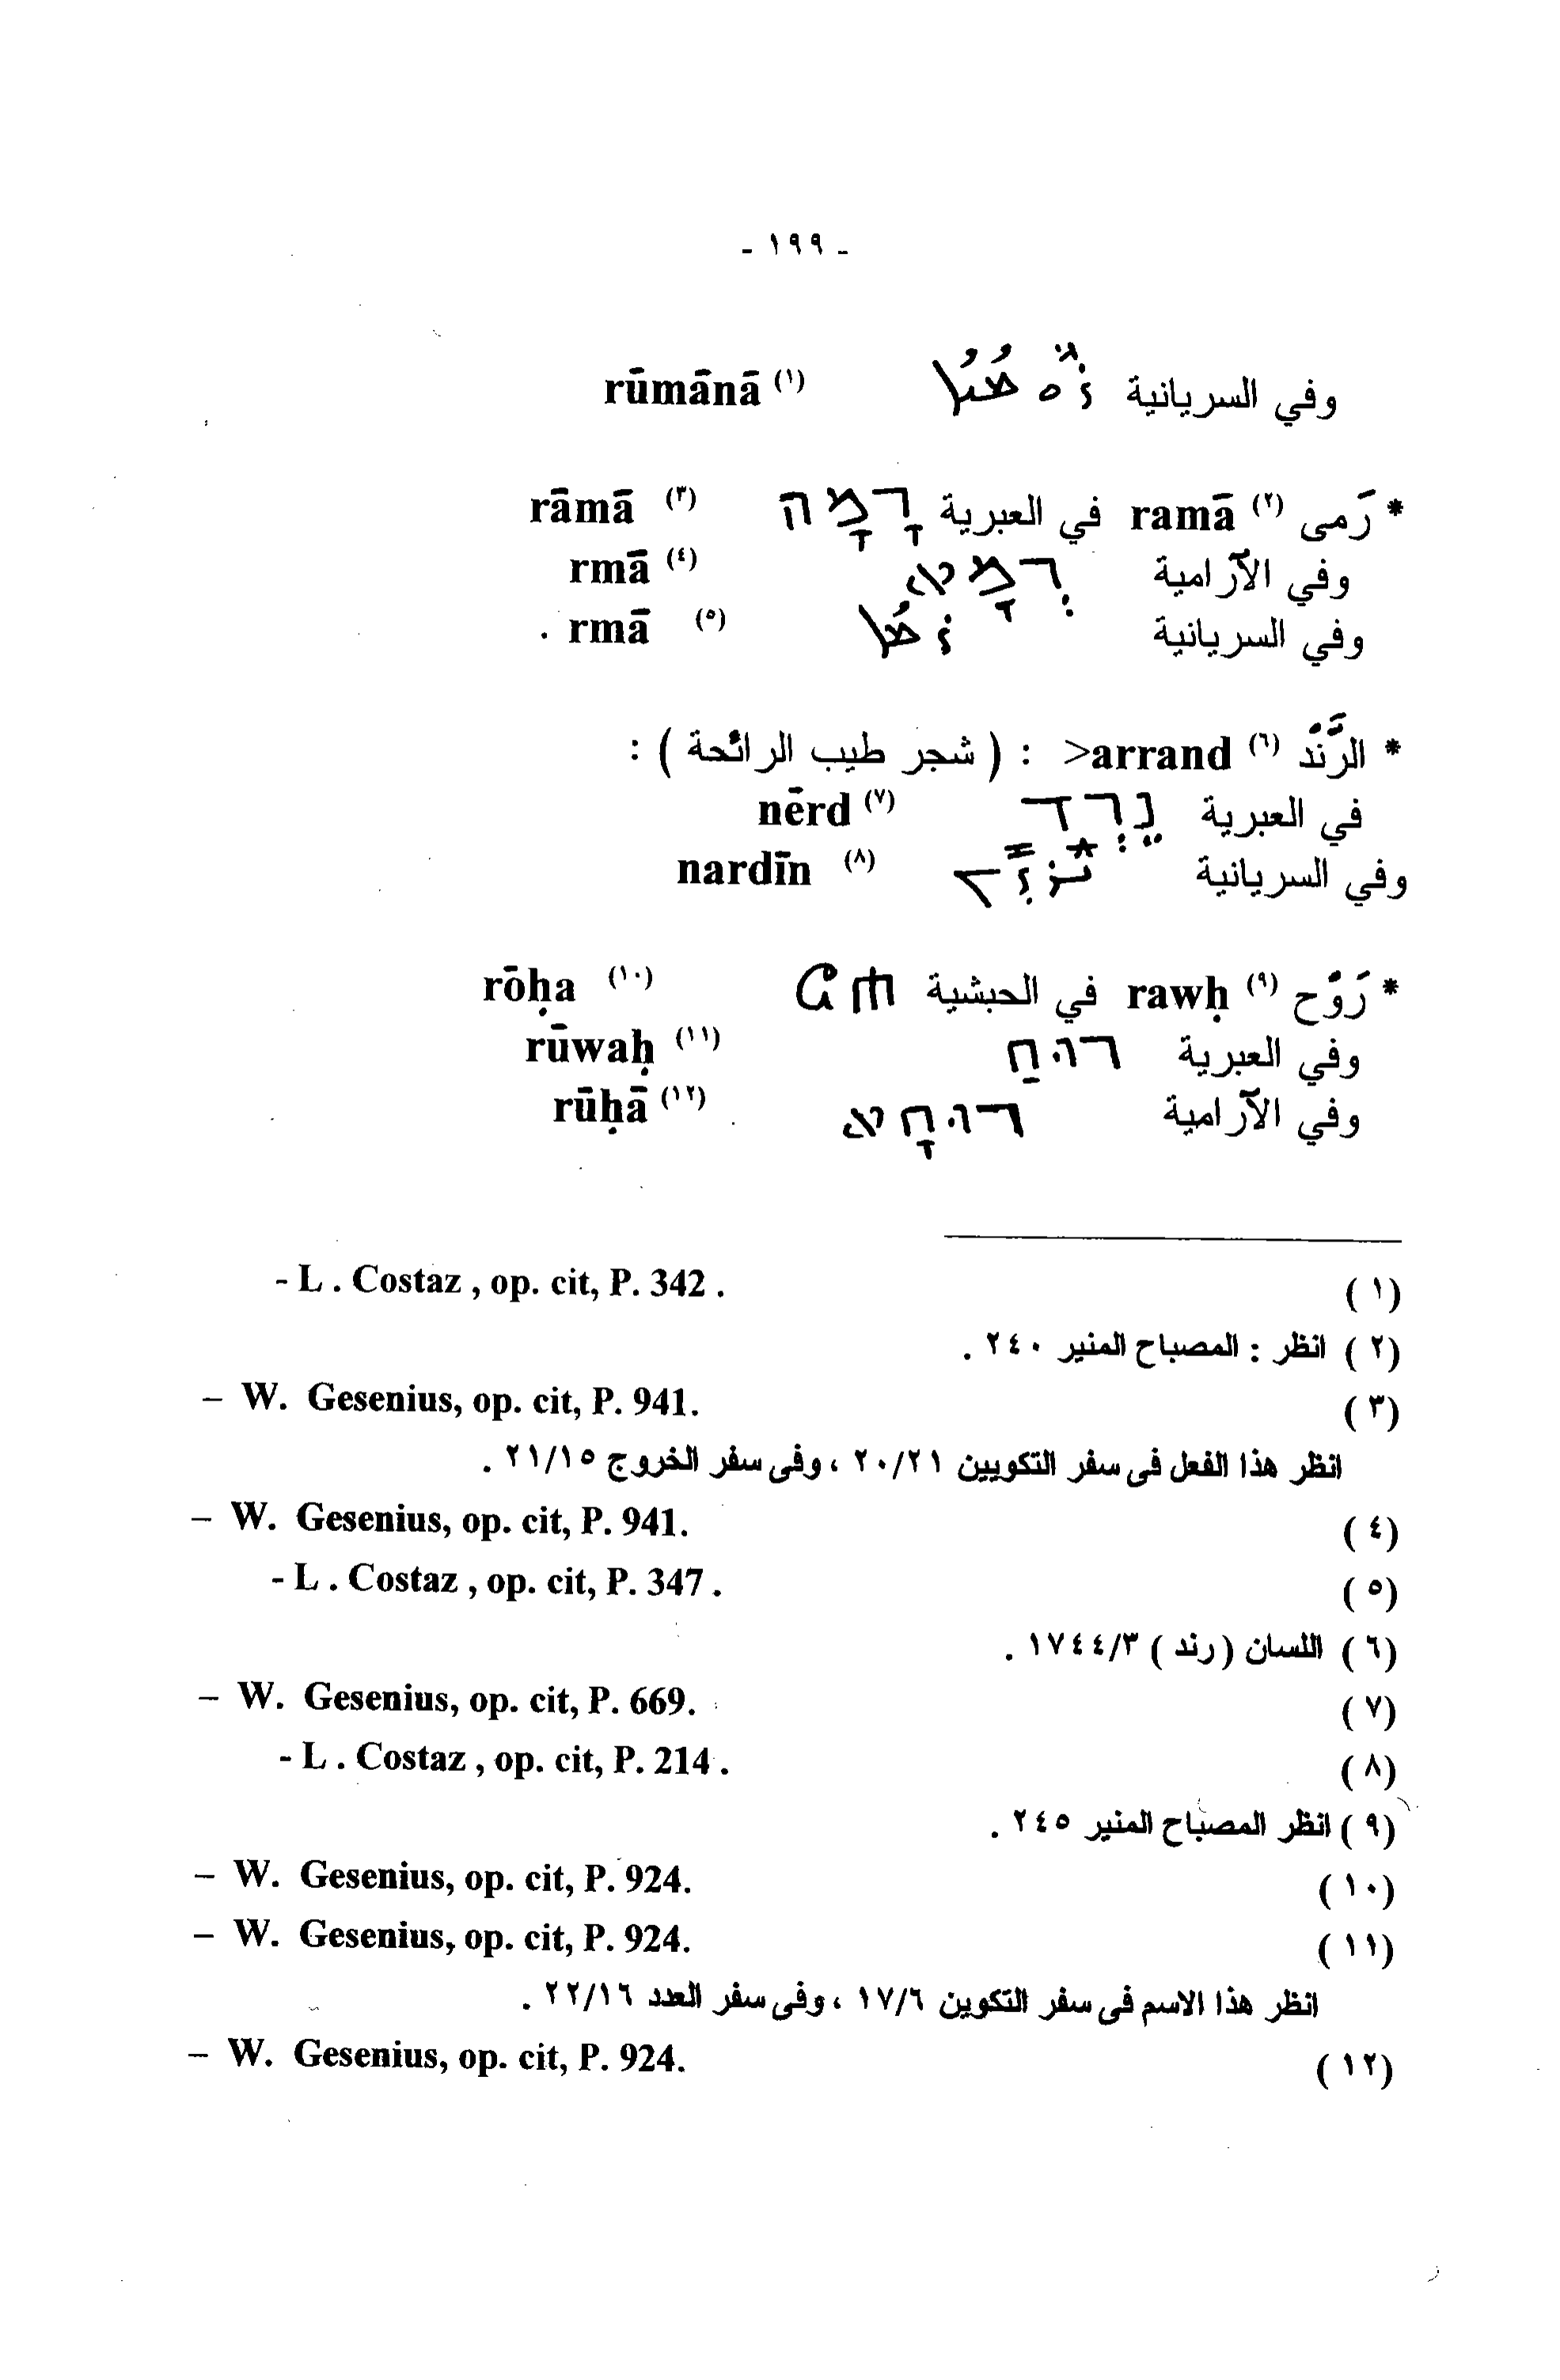 - ١٩٩ -
وفي السريانية ܪܘܡܢܐ rūmānā (١)
* رَمى (٢) ramā في العبرية רָמָה rāmā (٣)
وفي الآرامية רְמָא rmā (٤)
وفي السريانية ܪܡܐ rmā (٥) .
* الرَّنْد (٦) >arrand : ( شجر طيب الرائحة ) :
في العبرية נֵרְדּ nērd (٧)
وفي السريانية nardīn (٨)
* رَوْح (٩) rawḥ في الحبشية ሮሐ rōḥa (١٠)
وفي العبرية רוּחַ rūwaḥ (١١)
وفي الآرامية רוּחָא rūḥā (١٢)
(١) - L . Costaz , op. cit, P. 342 .
(٢) انظر : المصباح المنير ٢٤٠ .
(٣) – W. Gesenius, op. cit, P. 941.
انظر هذا الفعل فى سفر التكويين ٢٠/٢١ ، وفى سفر الخروج ٢١/١٥ .
(٤) – W. Gesenius, op. cit, P. 941.
(٥) - L . Costaz , op. cit, P. 347 .
(٦) اللسان ( رند ) ١٧٤٤/٣ .
(٧) – W. Gesenius, op. cit, P. 669.
(٨) - L . Costaz , op. cit, P. 214 .
(٩) انظر المصباح المنير ٢٤٥ .
(١٠) – W. Gesenius, op. cit, P. 924.
(١١) – W. Gesenius, op. cit, P. 924.
انظر هذا الاسم فى سفر التكوين ١٧/٦ ، وفى سفر العدد ٢٢/١٦ .
(١٢) – W. Gesenius, op. cit, P. 924.